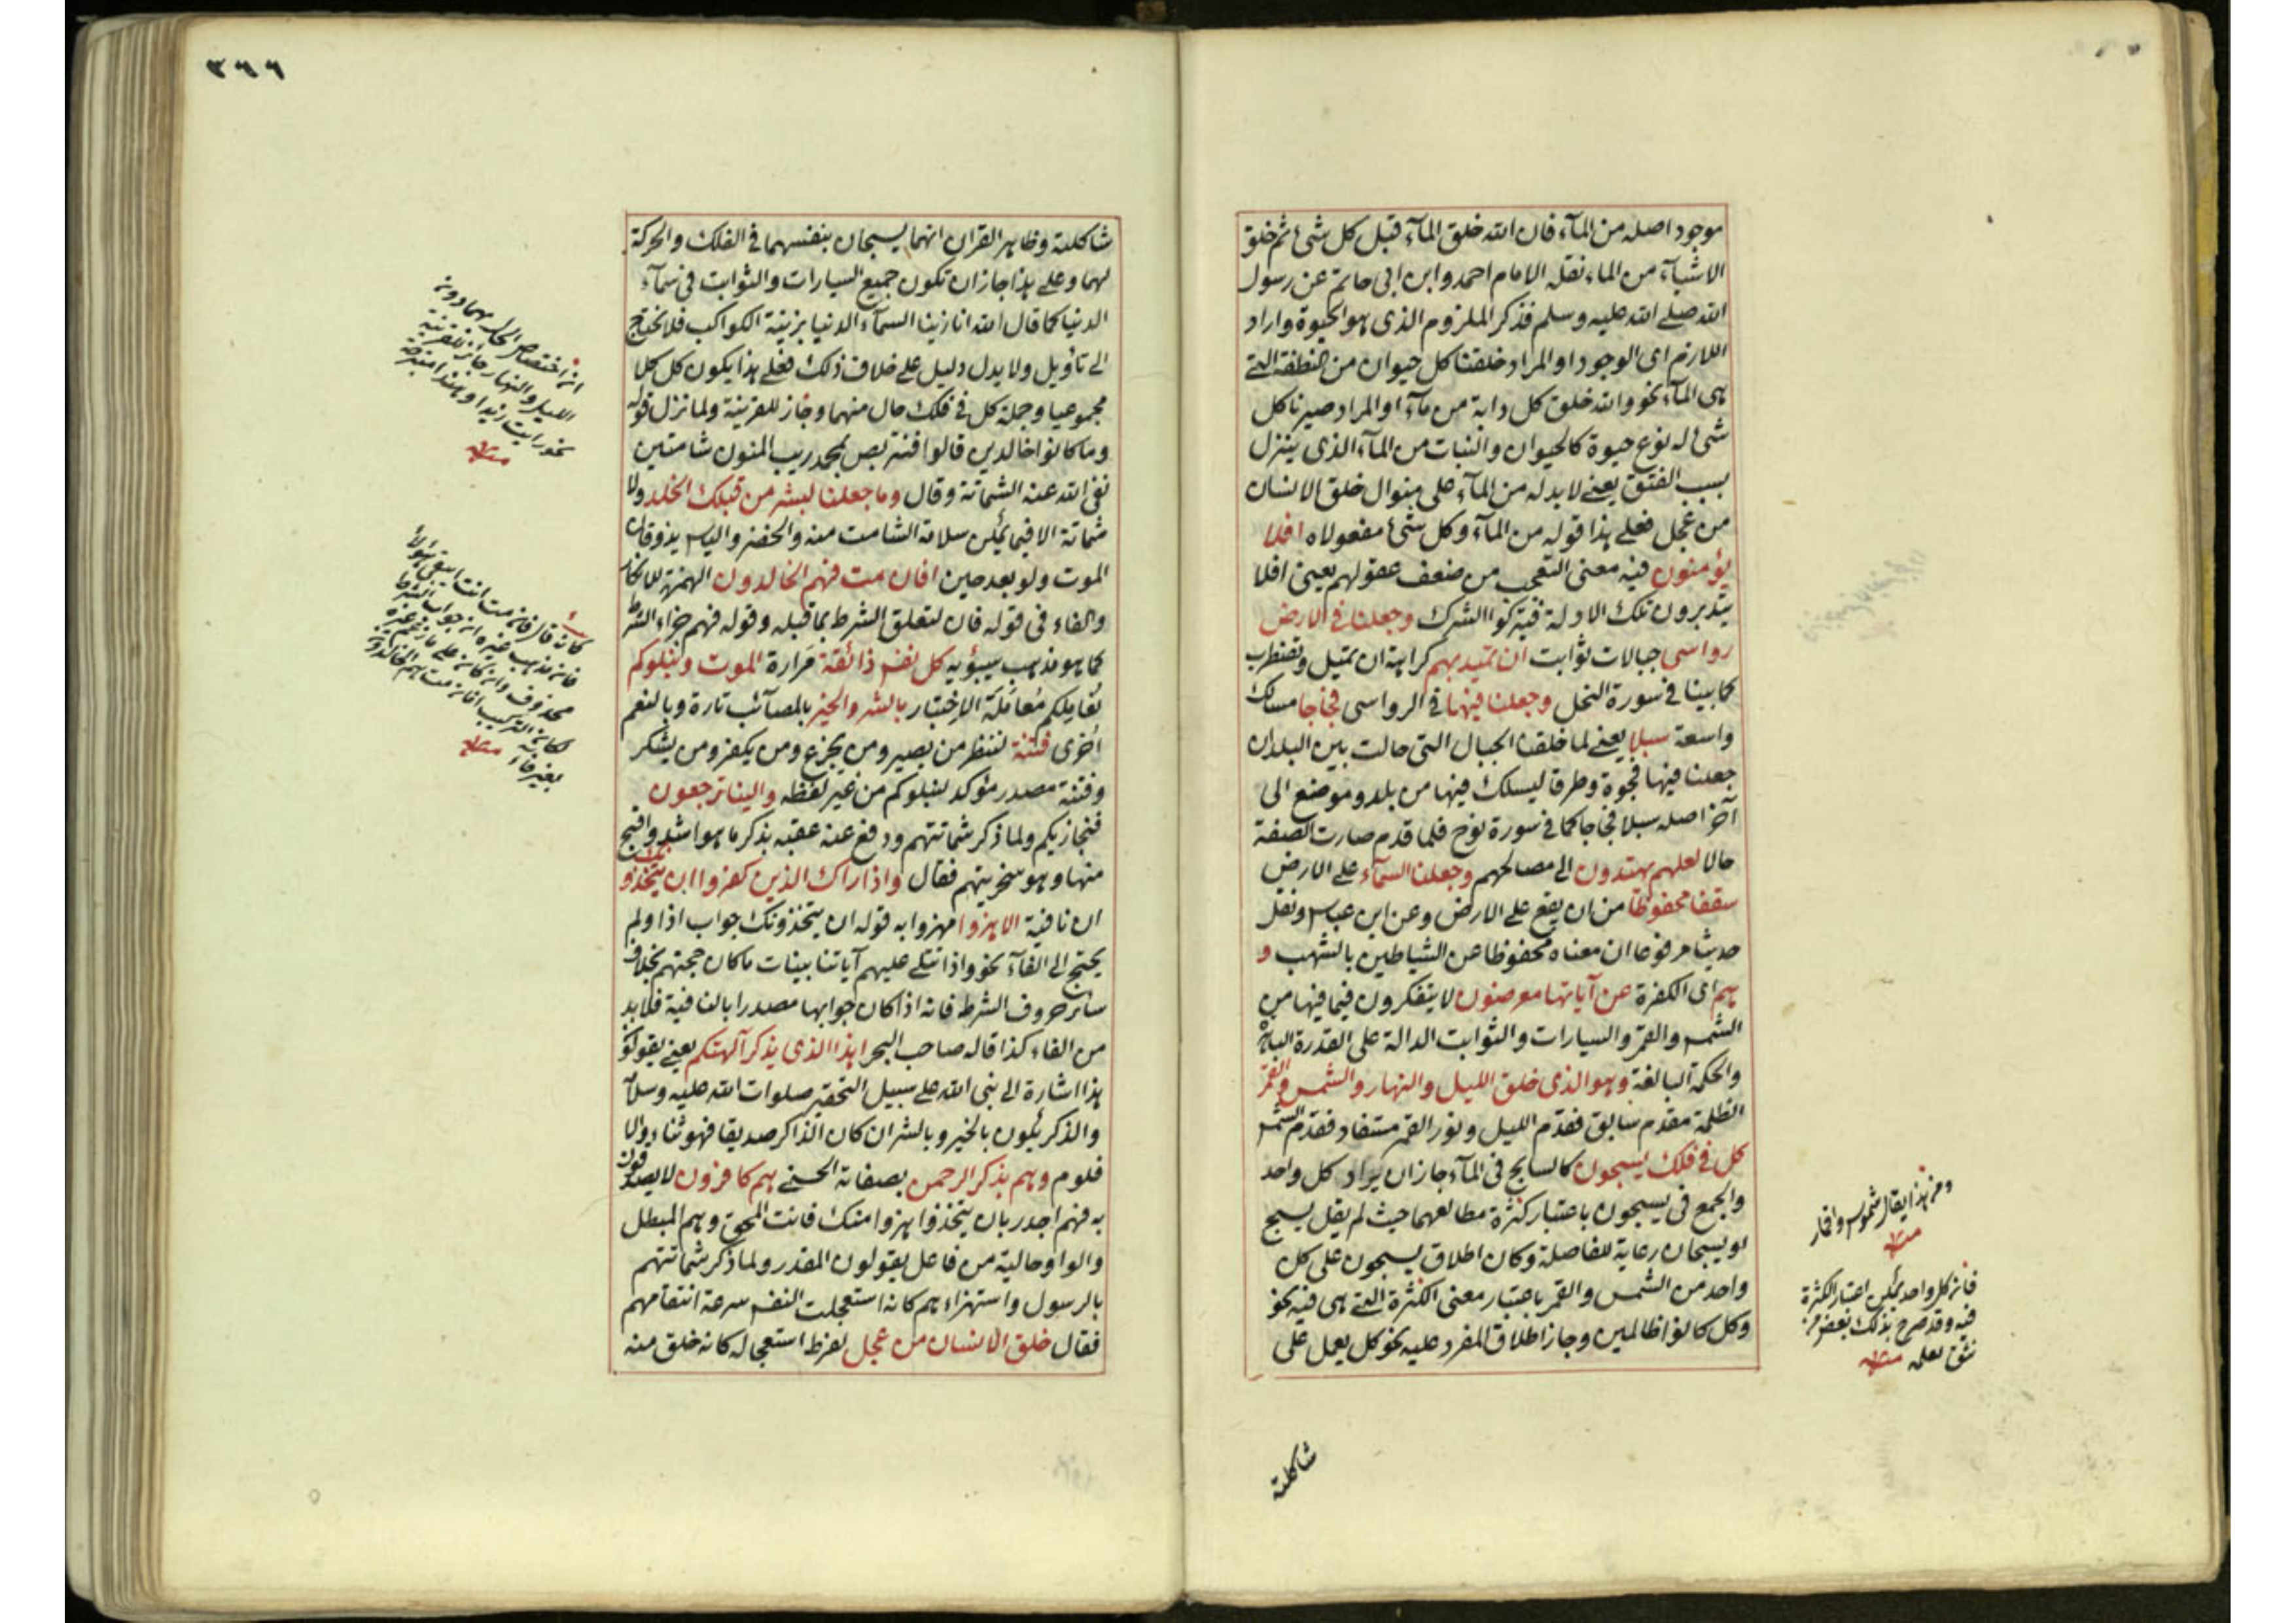 موجود اصله من المآء فان الله خلق المآء قبل كل شئ ثم خلق
الاشيآء من الماء نقله الامام احمد وابن ابى حاتم عن رسول
الله صلے الله عليه وسلم فذكر الملزوم الذى هو الحيوة واراد
اللازم اى الوجود او المراد خلقنا كل حيوان من النطفة التے
هى المآء نحو والله خلق كل دابة من مآء او المراد صيرنا كل
شئ له نوع حيوة كالحيوان والنبات من المآء الذى ينزل
بسبب الفتق يعنے لا بد له من المآء على منوال خلق الانسان
من عجل فعلے هذا قوله من المآء وكل شئ مفعولاه افلا
يؤمنون فيه معنى التعجب من ضعف عقولهم يعنى افلا
يتدبرون تلك الادلة فيتركوا الشرك وجعلنا فى الارض
رواسى جبالات ثوابت ان تميد بهم كراهة ان تميل وتضطرب
كما بينا فى سورة النحل وجعلنا فيها فى الرواسى فجاجا مسالك
واسعة سبلا يعنے لما خلقنا الجبال التى حالت بين البلدان
جعلنا فيها فجوة وطرقا ليسلك فيها من بلد وموضع الى
آخر اصله سبلا فجاجا كما فى سورة نوح فلما قدم صارت الصفة
حالا لعلهم يهتدون الى مصالحهم وجعلنا السمآء على الارض
سقفا محفوظا من ان يقع على الارض وعن ابن عباس ونقل
حديثا مرفوعا ان معناه محفوظا عن الشياطين بالشهب و
هم اى الكفرة عن آياتها معرضون لا يتفكرون فيما فيها من
الشمس والقمر والسيارات والثوابت الدالة على القدرة الباهرة
والحكمة البالغة وهو الذى خلق الليل والنهار والشمس والقمر
الظلمة مقدم سابق فقدم الليل ونور القمر مستفاد فقدم الشمس
كل فى فلك يسبحون كالسابح فى المآء جاز ان يراد كل واحد
والجمع فى يسبحون باعتبار كثرة مطالعهما حيث لم يقل يسبح
او يسبحان رعاية للفاصلة وكان اطلاق يسبحون على كل
واحد من الشمس والقمر باعتبار معنى الكثرة التے هى فيه نحو
وكل كانوا ظالمين وجاز اطلاق المفرد عليه نحو كل يعمل على
ومن هذا يقال شموس واقمار
منه
فان كل واحد يمكن اعتبار الكثرة
فيه وقد صرح بذلك بعض من
نثق بعلمه منه
شاكلته
٣٦٦
شاكلته وظاهر القران انهما يسبحان بنفسهما فى الفلك والحركة
لهما وعلے هذا جاز ان تكون جميع السيارات والثوابت فى سمآء
الدنيا كما قال الله انا زينا السمآء الدنيا بزينة الكواكب فلا نحتاج
الى تاويل ولا يدل دليل على خلاف ذلك فعلے هذا يكون كل كلا
مجموعيا وجملة كل فى فلك حال منهما وجاز للقرينة ولما نزل قوله
وما كانوا خالدين قالوا فنتربص بمحمد ريب المنون شامتين
نفى الله عنه الشماتة وقال وما جعلنا لبشر من قبلك الخلد ولا
شماتة الا فيما يمكن سلامة الشامت منه والخضر والياس يذوقان
الموت ولو بعد حين افان مت فهم الخالدون الهمزة للانكار
والفاء فى قوله فان لتعلق الشرط بما قبله وقوله فهم جزاء الشرط
كما هو مذهب سيبويه كل نفس ذائقة مرارة الموت ونبلوكم
نعاملكم معاملة الاختبار بالشر والخير بالمصآئب تارة وبالنعم
اخرى فتنة لننظر من يصبر ومن يجزع ومن يكفر ومن يشكر
وفتنة مصدر مؤكد لنبلوكم من غير لفظه والينا ترجعون
فنجازيكم ولما ذكر شماتتهم ودفع عنه عقبه بذكر ما هو اشد واقبح
منها وهو سخريتهم فقال واذا راك الذين كفروا ان يتخذونك
ان نافية الا هزوا مهزوا به قوله ان يتخذونك جواب اذا ولم
يحتج الى الفآء نحو واذا تتلى عليهم آياتنا بينات ما كان حجتهم بخلاف
سائر حروف الشرط فانه اذا كان جوابها مصدرا بالنافية فلا بد
من الفاء كذا قاله صاحب البحر اهذا الذى يذكر آلهتكم يعنے يقولون
هذا اشارة الى نبى الله على سبيل التحقير صلوات الله عليه وسلامه
والذكر يكون بالخير وبالشر ان كان الذاكر صديقا فهو ثناء والا
فلوم وهم بذكر الرحمن بصفاته الحسنے هم كافرون لا يصدقون
به فهم اجدر بان يتخذوا هزوا منك فانت المحق وهم المبطل
والواو حالية من فاعل يقولون المقدر ولما ذكر شماتتهم
بالرسول واستهزاءهم كانه استعجلت النفس سرعة انتقامهم
فقال خلق الانسان من عجل لفرط استعجاله كانه خلق منه
ان اختصاص الحال بهما دون
الليل والنهار جائز للقرينة
نحو رايت زيدا وهندا متبرجة
منه
كانه قال فان مت انت
فان مذهب غيره ان جواب الشرط
محذوف
بغير فاء منه